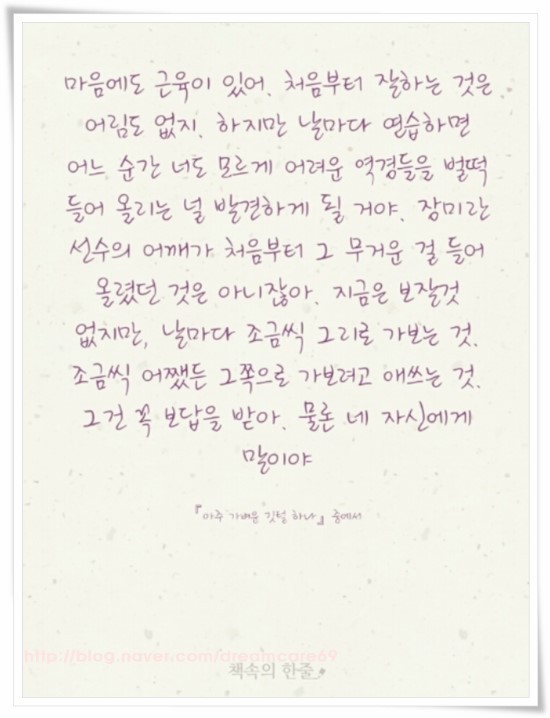 마음에도 근육이 있어. 처음부터 잘하는 것은
어림도 없지. 하지만 날마다 연습하면
어느 순간 너도 모르게 어려운 역경들을 벌떡
들어 올리는 널 발견하게 될 거야. 장미란
선수의 어깨가 처음부터 그 무거운 걸 들어
올렸던 것은 아니잖아. 지금은 보잘것
없지만, 날마다 조금씩 그리로 가보는 것.
조금씩 어쨌든 그쪽으로 가보려고 애쓰는 것.
그건 꼭 보답을 받아. 물론 네 자신에게
말이야
『아주 가벼운 깃털 하나』 중에서
http://blog.naver.com/dreamcare69
책속의 한줄